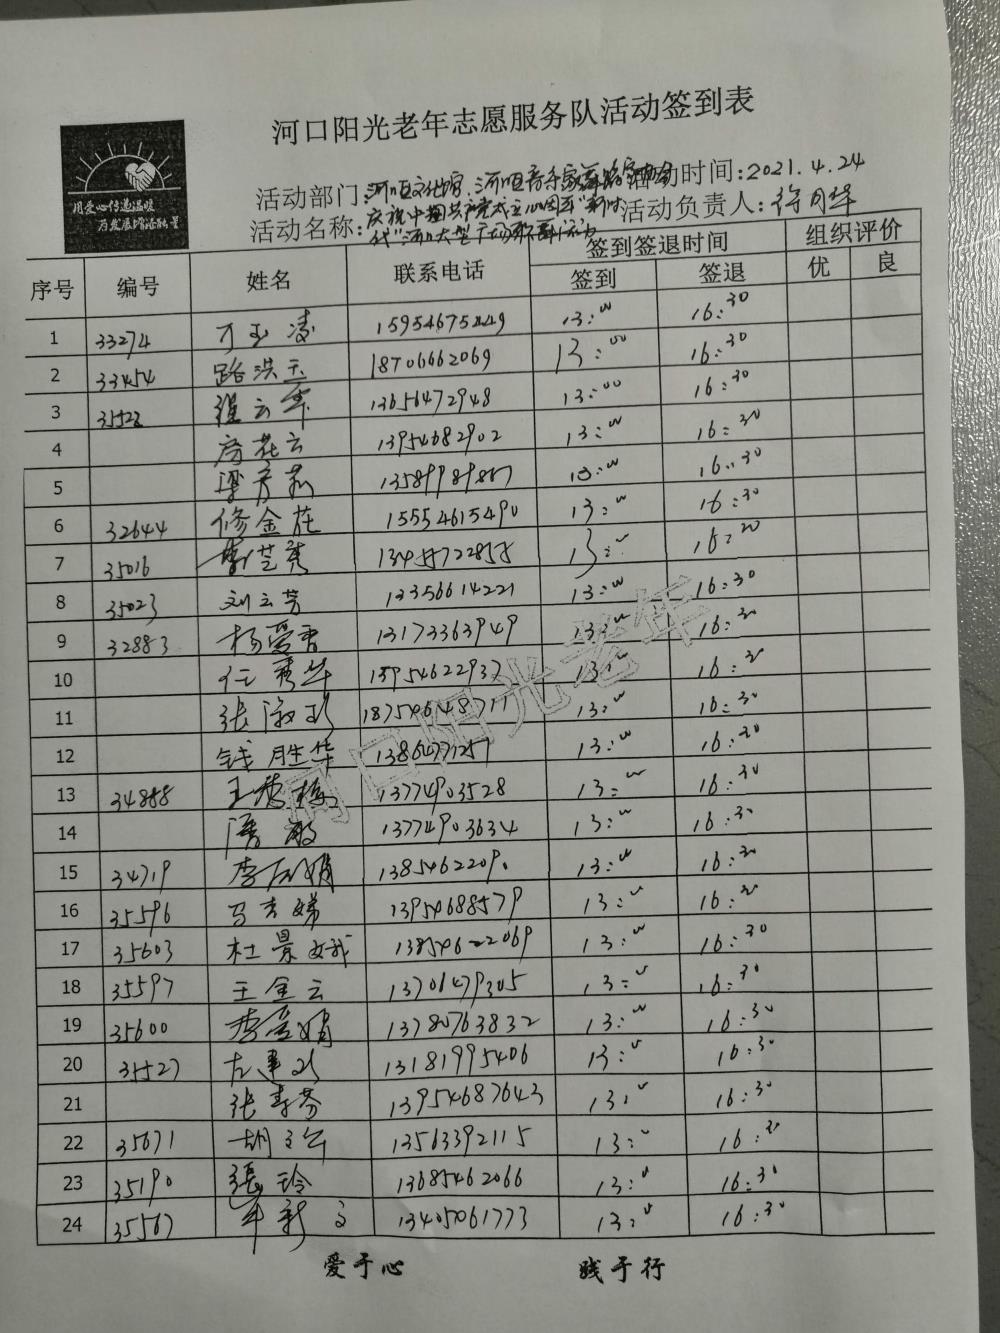 河口阳光老年志愿服务队活动签到表
用爱心传递温暖
为发展增添能量
活动部门: 活动时间: 2021.4.24
活动名称: 活动负责人:
序号 编号 姓名 联系电话 签到签退时间 组织评价
签到 签退 优 良
1 33274 15954675449 13:00 16:30
2 33454 路洪玉 18706662069 13:00 16:30
3 35528 13656472948 13:00 16:30
4 房花云 13954682902 13:00 16:30
5 梁彦莉 13589989887 13:00 16:30
6 32644 修金花 15554615490 13:00 16:30
7 35016 13:00
8 35023 刘云芳 13356614221 13:00 16:30
9 32883 杨爱香 13173363949 13:00 16:30
10 任秀华 15954622937 13:00 16:30
11 张淑珍 18754648711 13:00 16:30
12 钱胜华 13:00 16:30
13 34888 13774903528 13:00 16:30
14 13774903634 13:00 16:30
15 34719 1385462209 13:00 16:30
16 35596 马秀娣 13954688579 13:00 16:30
17 35603 杜景娥 13854622069 13:00 16:30
18 35597 王金云 13706479305 13:00 16:30
19 35600 李爱娟 13780763832 13:00 16:30
20 35527 左建珍 13181995406 13:00 16:30
21 张春芬 13954687643 13:00 16:30
22 35671 13563392115 13:00 16:30
23 35190 張玲 13685462066 13:00 16:30
24 35567 13405061773 13:00 16:30
河口阳光老年
爱于心 践于行